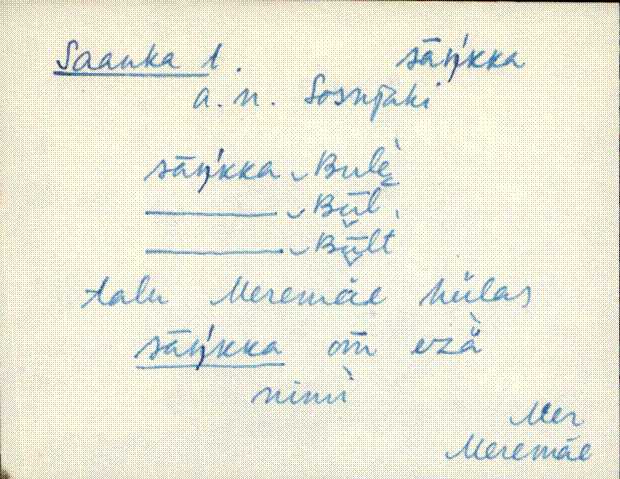 Saanka 1. sāŋ'kka
a. n. Sosnjaki
sāŋ'kka Bulè
——— Būl̀
——— Būlt
talu Meremäe külas
sāŋ'kka om̄ ezä
nimi
Mer
Meremäe